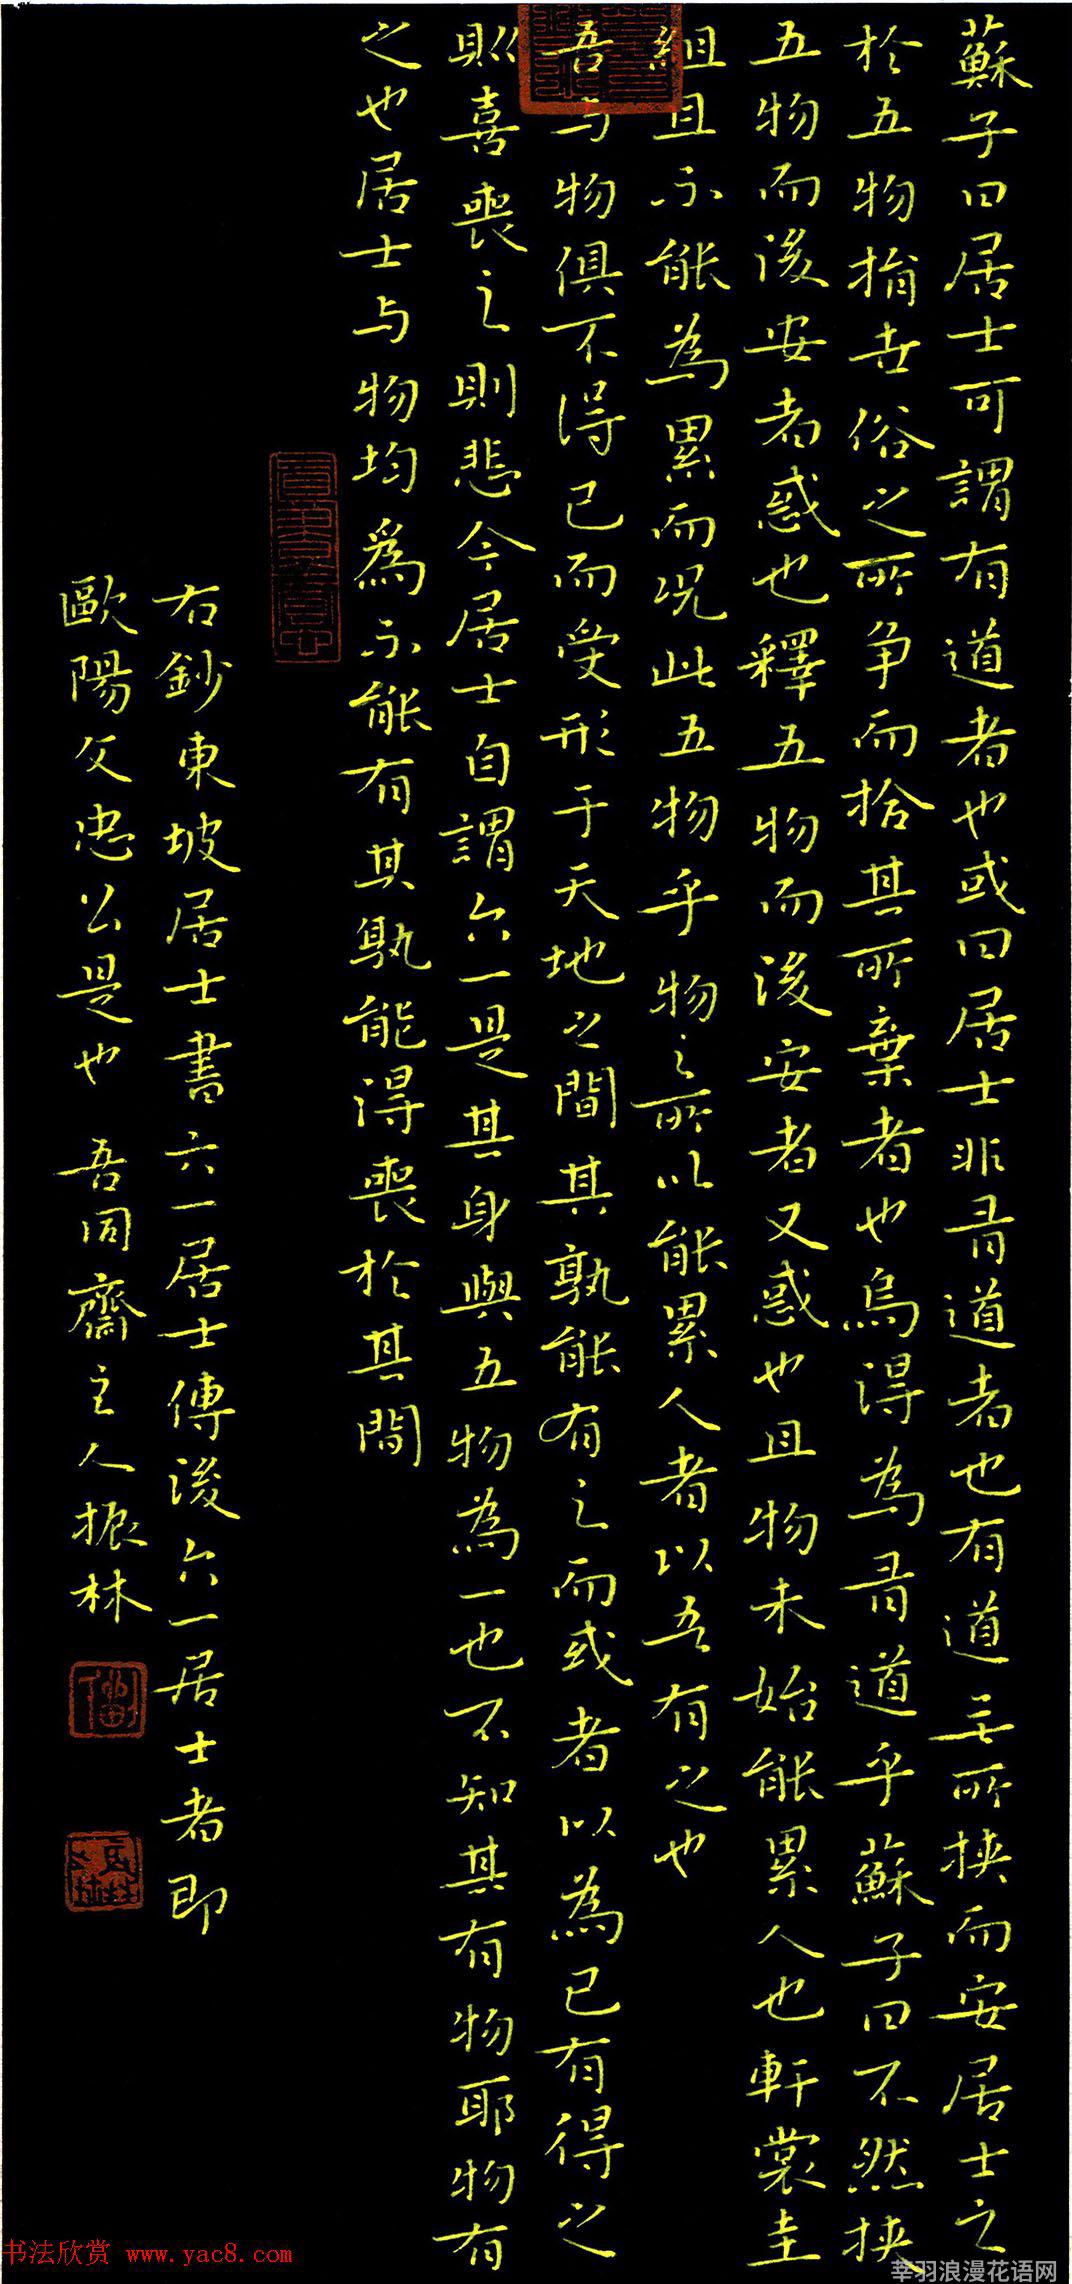 蘇子曰居士可謂有道者也或曰居士非有道者也有道無所挾而安居士之
於五物捐世俗之所争而拾其所棄者也烏得為有道乎蘇子曰不然挾
五物而後安者惑也釋五物而後安者又惑也且物未始能累人也軒裳圭
組且不能為累而况此五物乎物之所以能累人者以吾有之也
吾与物俱不得已而受形于天地之間其孰能有之而或者以為己有得之
則喜喪之則悲今居士自謂六一是其身與五物為一也不知其有物耶物有
之也居士与物均為不能有其孰能得喪於其間
右鈔東坡居士書六一居士傳後六一居士者即
歐陽文忠公是也 吾同齋主人振林
书法欣赏 www.yac8.com
莘羽浪漫花语网